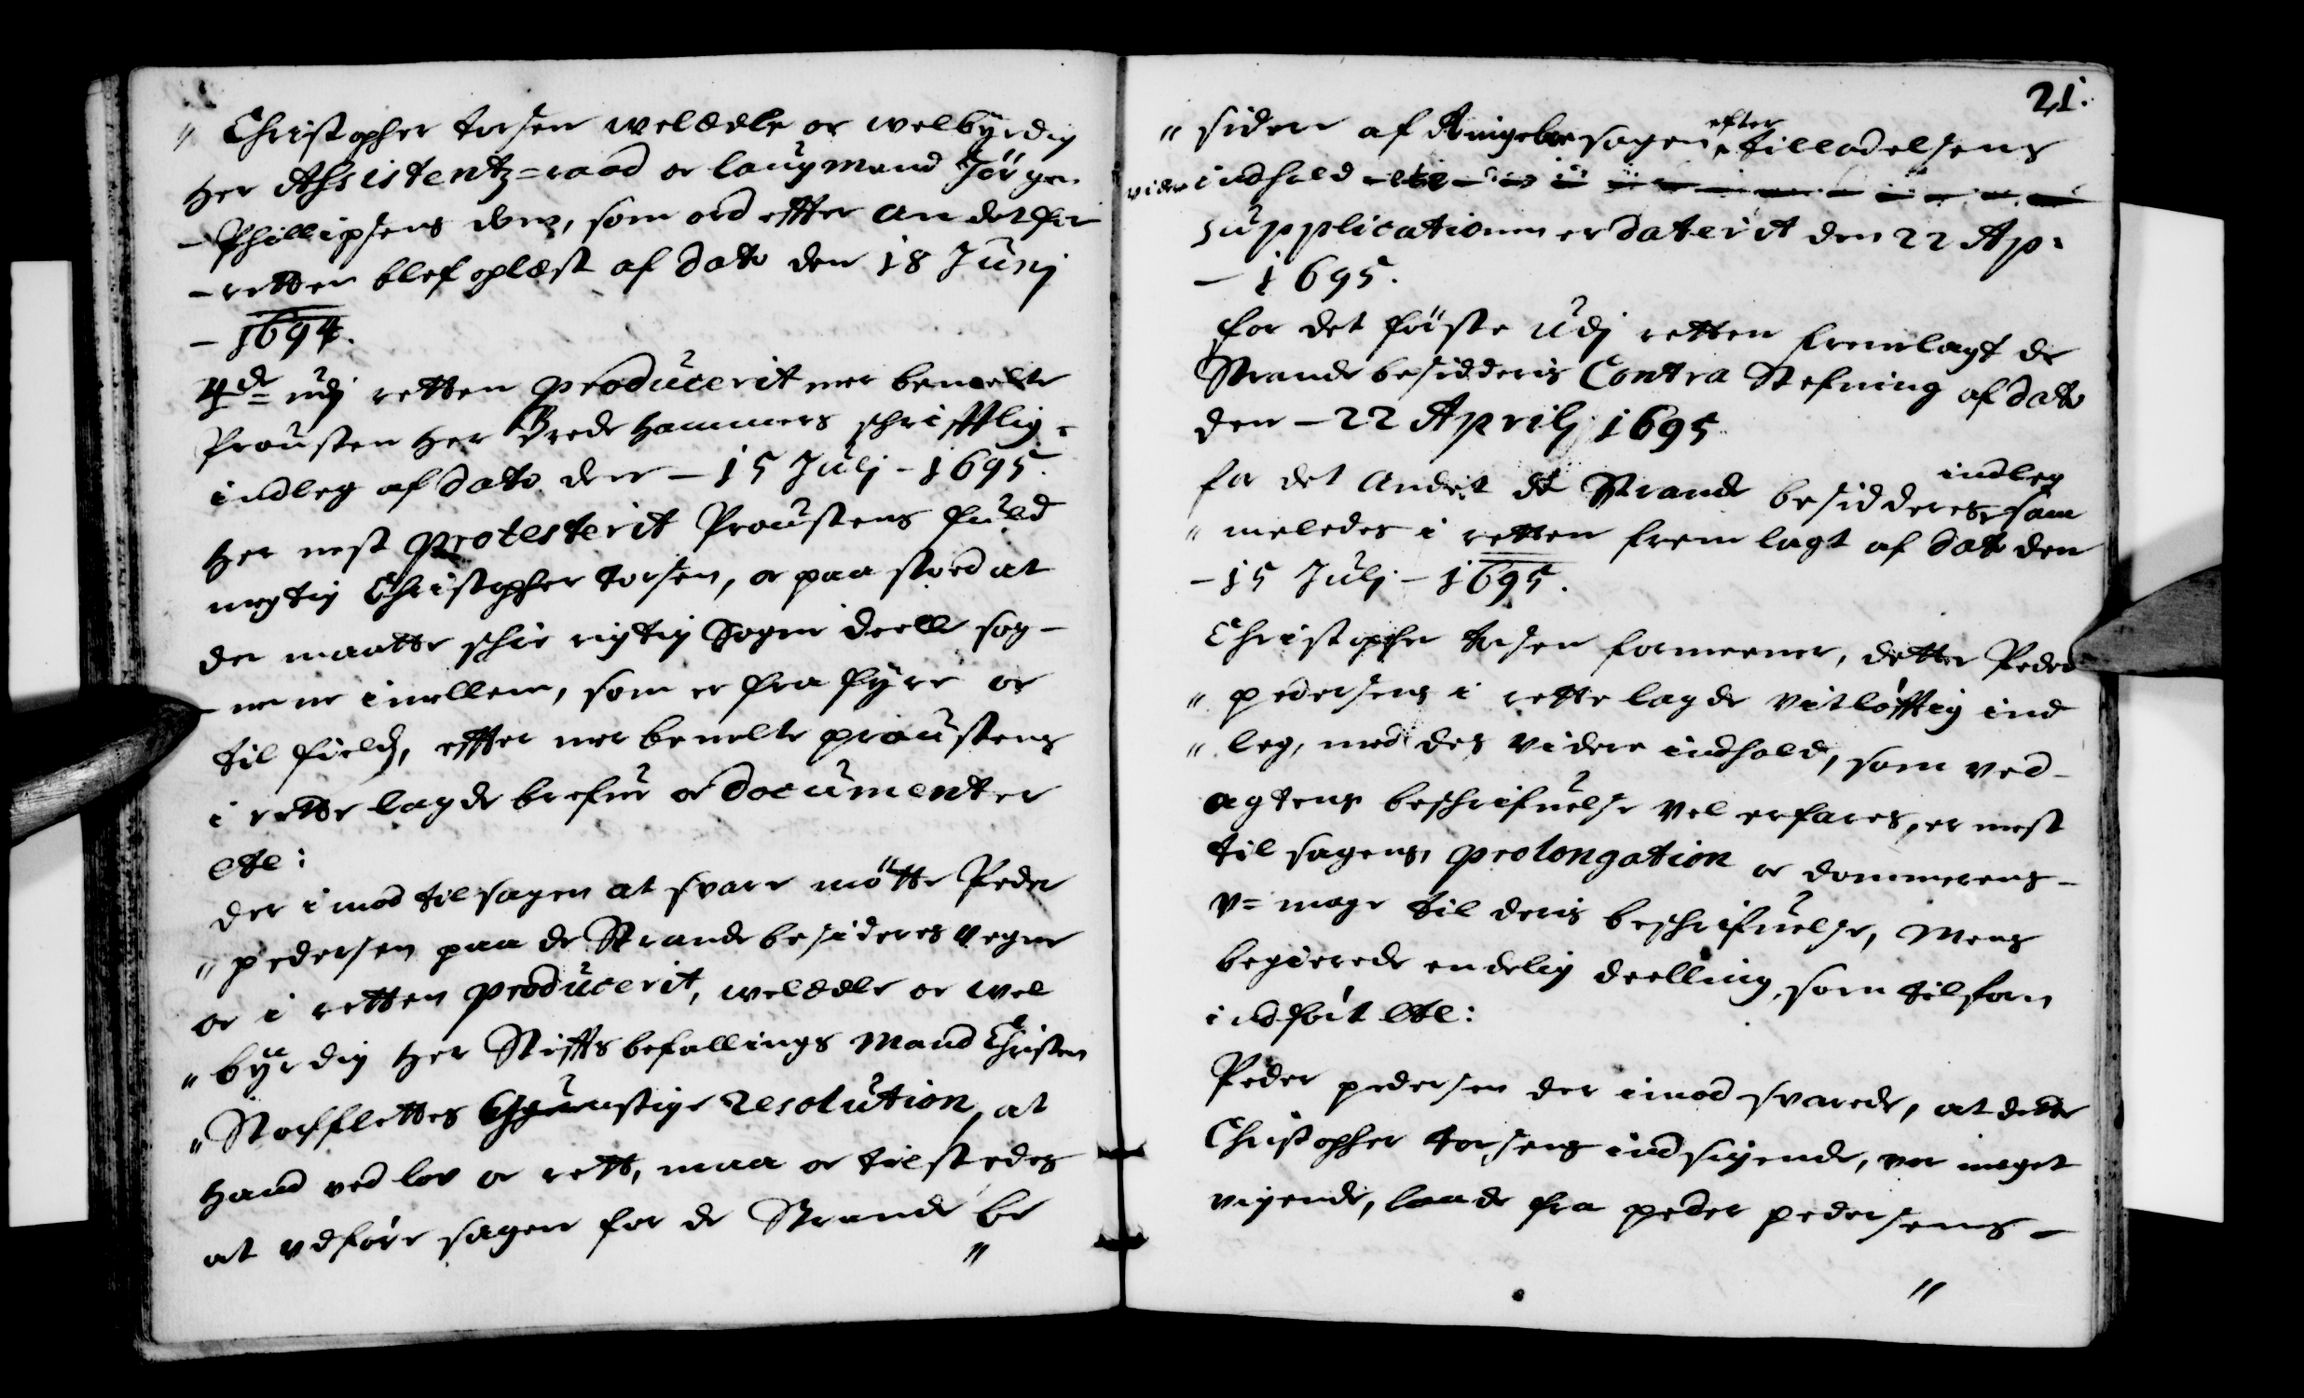 " Christopher torsen welædle oc welbyrdig
Her Assistentz=raad oc laugmand Jörgen
- Phillipsens dom, som ord effter andet for
- retten blef oplæst af dato den 18 Junj
- 1694.
4de= udj retten producerit mer bemelte
Prousten Her Brede Hammers schrifftlig-
indleg af dato den - 15 Julj - 1695.
Her nest protesterit Proustens fuld
megtig Christopher torsen, oc paa stoed at
der maatte schie rigtig Sogne deelle sog-
- nene imellem, som er fra fyre oc
til field, effter mer bemelte proustens
i rette lagde brefue oc documenter
etc:
der imod til sagen at svare mötte Peder
" pedersen paa de Strandebesideres vegne
oc i retten producerit, welædle oc wel
" byrdig Her Stiffts befallings Mand Christen
" Stochflettes Gunstige resolution, at
Hand ved lov oc rett, maa oc tilstedes
at udföre sagen for de Strande be
"
21.
" sidere af Ringeboe sogen efter tilladelsens
videre indhold
supplicationen er daterit den 22 Ap:
- 1695.
for det förste udj retten fremlagt de
Strande besidderis Contra Stefning af dato
den - 22 Aprilj 1695
for det Andet de Strande besidderes indleg sam
" meledes i retten frem lagt af dato den
- 15 Julj - 1695.
Christopher torsen formeener, dette Peder
" pedersens i rette lagde vitlöfftig ind
" leg, med des videre indhold, som ved-
agtens beschrifuelse vel erfares, er mest
til sagens, prolongation oc dommerens-
v= mage til deris beschrifuelse, Mens
begierede endelig deelling, som tilforn
indfört etc:
Peder pedersen der imod svarede, at dette
Christopher torsens indsigende, var meget
vigende, lande fra peder pedersens -
"